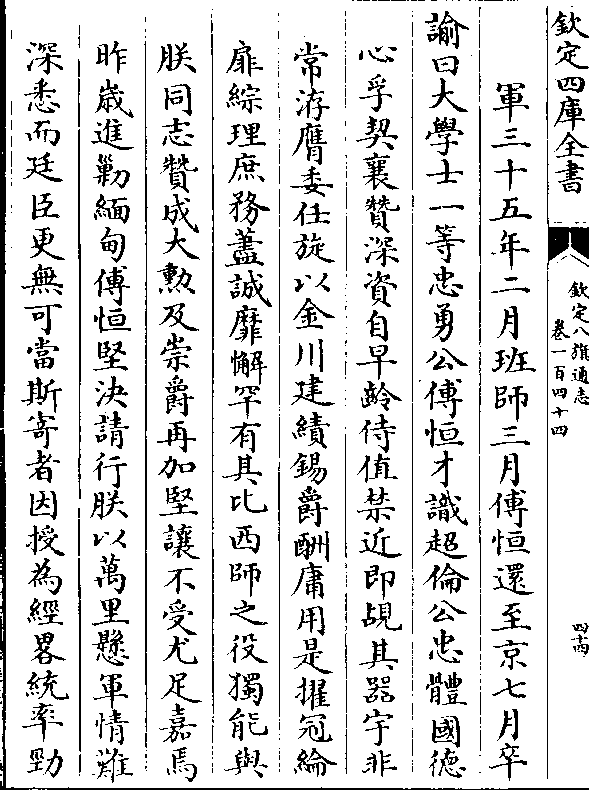 欽定四庫全書
欽定八旗通志
卷一百四十四
四十四
軍三十五年二月班師三月傅恒還至京七月卒
諭曰大學士一等忠勇公傅恒才識超倫公忠體國德
心孚契襄贊深資自早齡侍值禁近即覘其器宇非
常洊膺委任旋以金川建績錫爵酬庸用是擢冠綸
扉綜理庶務藎誠靡懈罕有其比西師之役獨能與
朕同志贊成大勲及崇爵再加堅讓不受尤足嘉焉
昨嵗進勦緬甸傅恒堅決請行朕以萬里懸軍情難
深悉而廷臣更無可當斯寄者因授為經畧統率勁